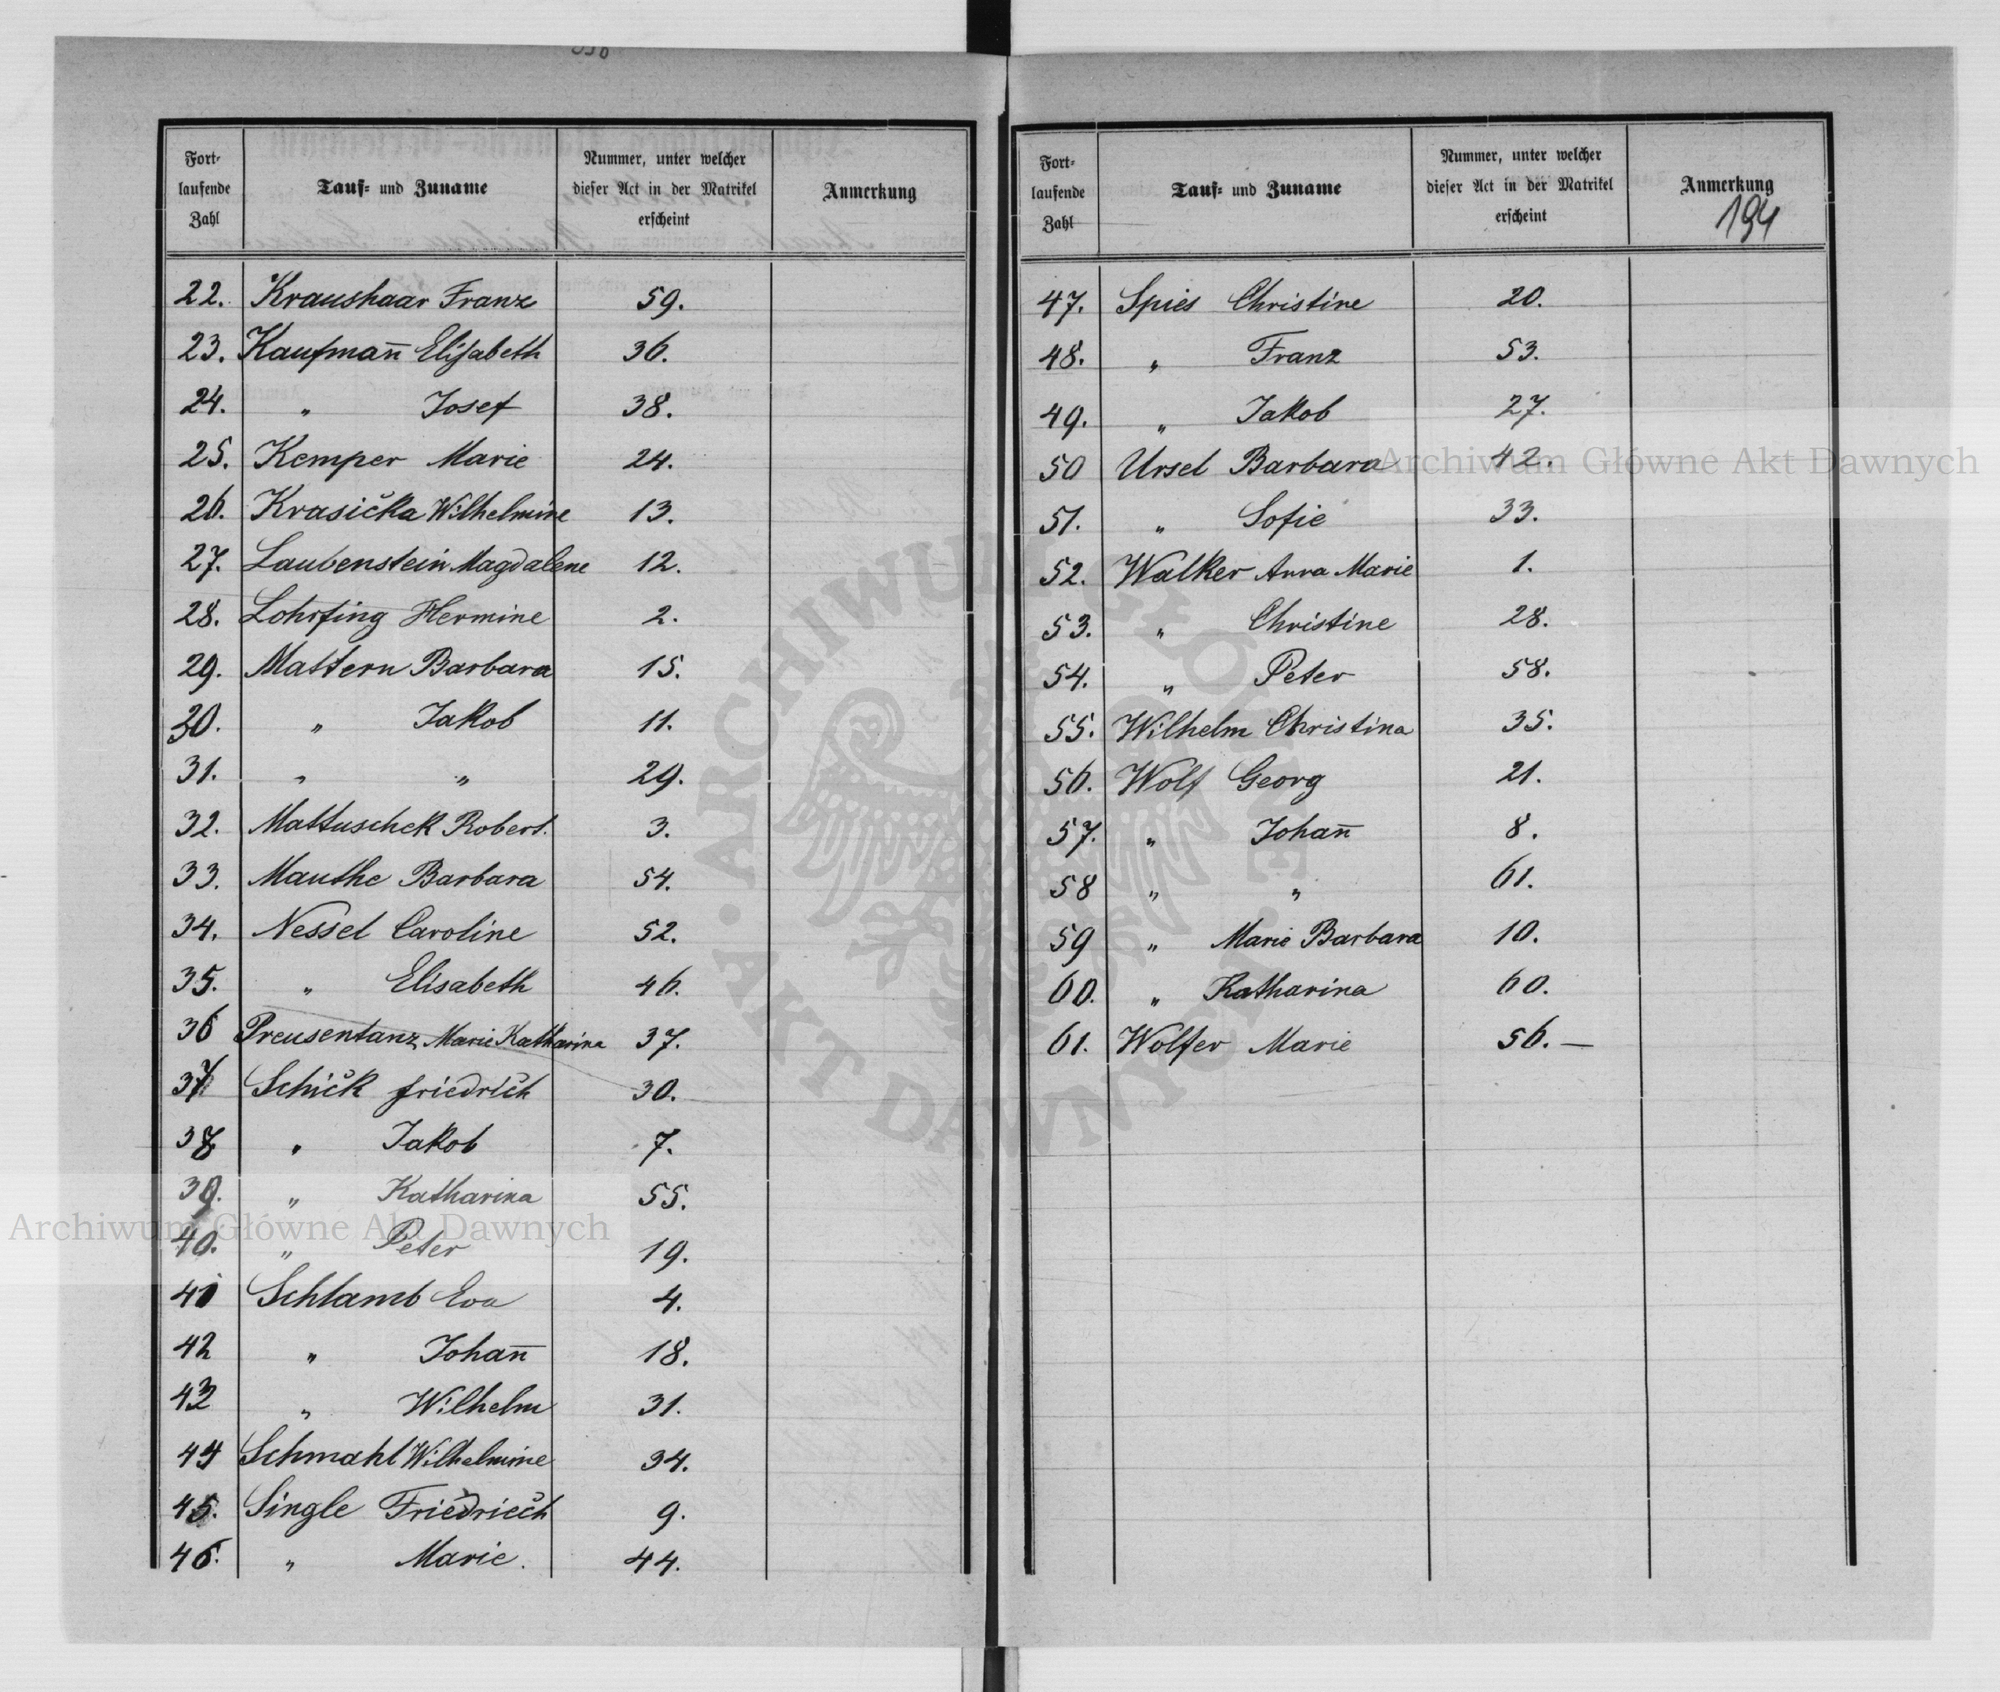 Fort-
laufende
Zahl
Tauf- und Zuname
Nummer, unter welcher
dieser Act in der Matrikel
erscheint
Anmerkung
22. Kraushaar Franz 59.
23. Kaufmañ Elisabeth 36.
24. „ Josef 38.
25. Kemper Marie 24.
26. Krasička Wilhelmine 13.
27. Laubenstein Magdalene 12.
28. Lohrfing Hermine 2.
29. Mattern Barbara 15.
30. „ Jakob 11.
31. „ „ 29.
32. Mattuschek Robert. 3.
33. Mauthe Barbara 54.
34. Nessel Caroline 52.
35. „ Elisabeth 46.
36 Preusentanz Marie Katharina 37.
37 Schičk friedrich 30.
38 „ Jakob 7.
39. „ Katharina 55.
40. „ Peter 19.
41 Schlamb Eva 4.
42 „ Johañ 18.
43 „ Wilhelm 31.
44 Schmahl Wilhelmine 34.
45. Single Friedriech 9.
46. „ Marie. 44.
Fort-
laufende
Zahl
Tauf- und Zuname
Nummer, unter welcher
dieser Act in der Matrikel
erscheint
Anmerkung
194
47. Spies Christine 20.
48. „ Franz 53.
49. „ Jakob 27.
50 Ursel Barbara 42.
51. „ Sofie 33.
52. Walker Anna Marie 1.
53. „ Christine 28.
54. „ Peter 58.
55. Wilhelm Christina 35.
56. Wolf Georg 21.
57. „ Johañ 8.
58 „ „ 61.
59 „ Marie Barbara 10.
60. „ Katharina 60.
61. Wolfer Marie 56. —
Archiwum Główne Akt Dawnych
Archiwum Główne Akt Dawnych
ARCHIWUM GŁÓWNE
AKT DAWNYCH